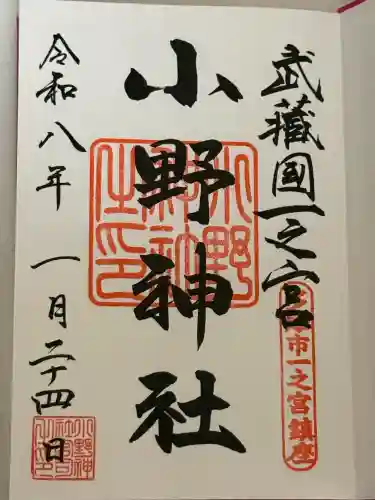 武藏國一之宮
多摩市一之宮鎮座
小野神社
小野神社之印
令和八年 一月二十四日
小野神社宮司之印